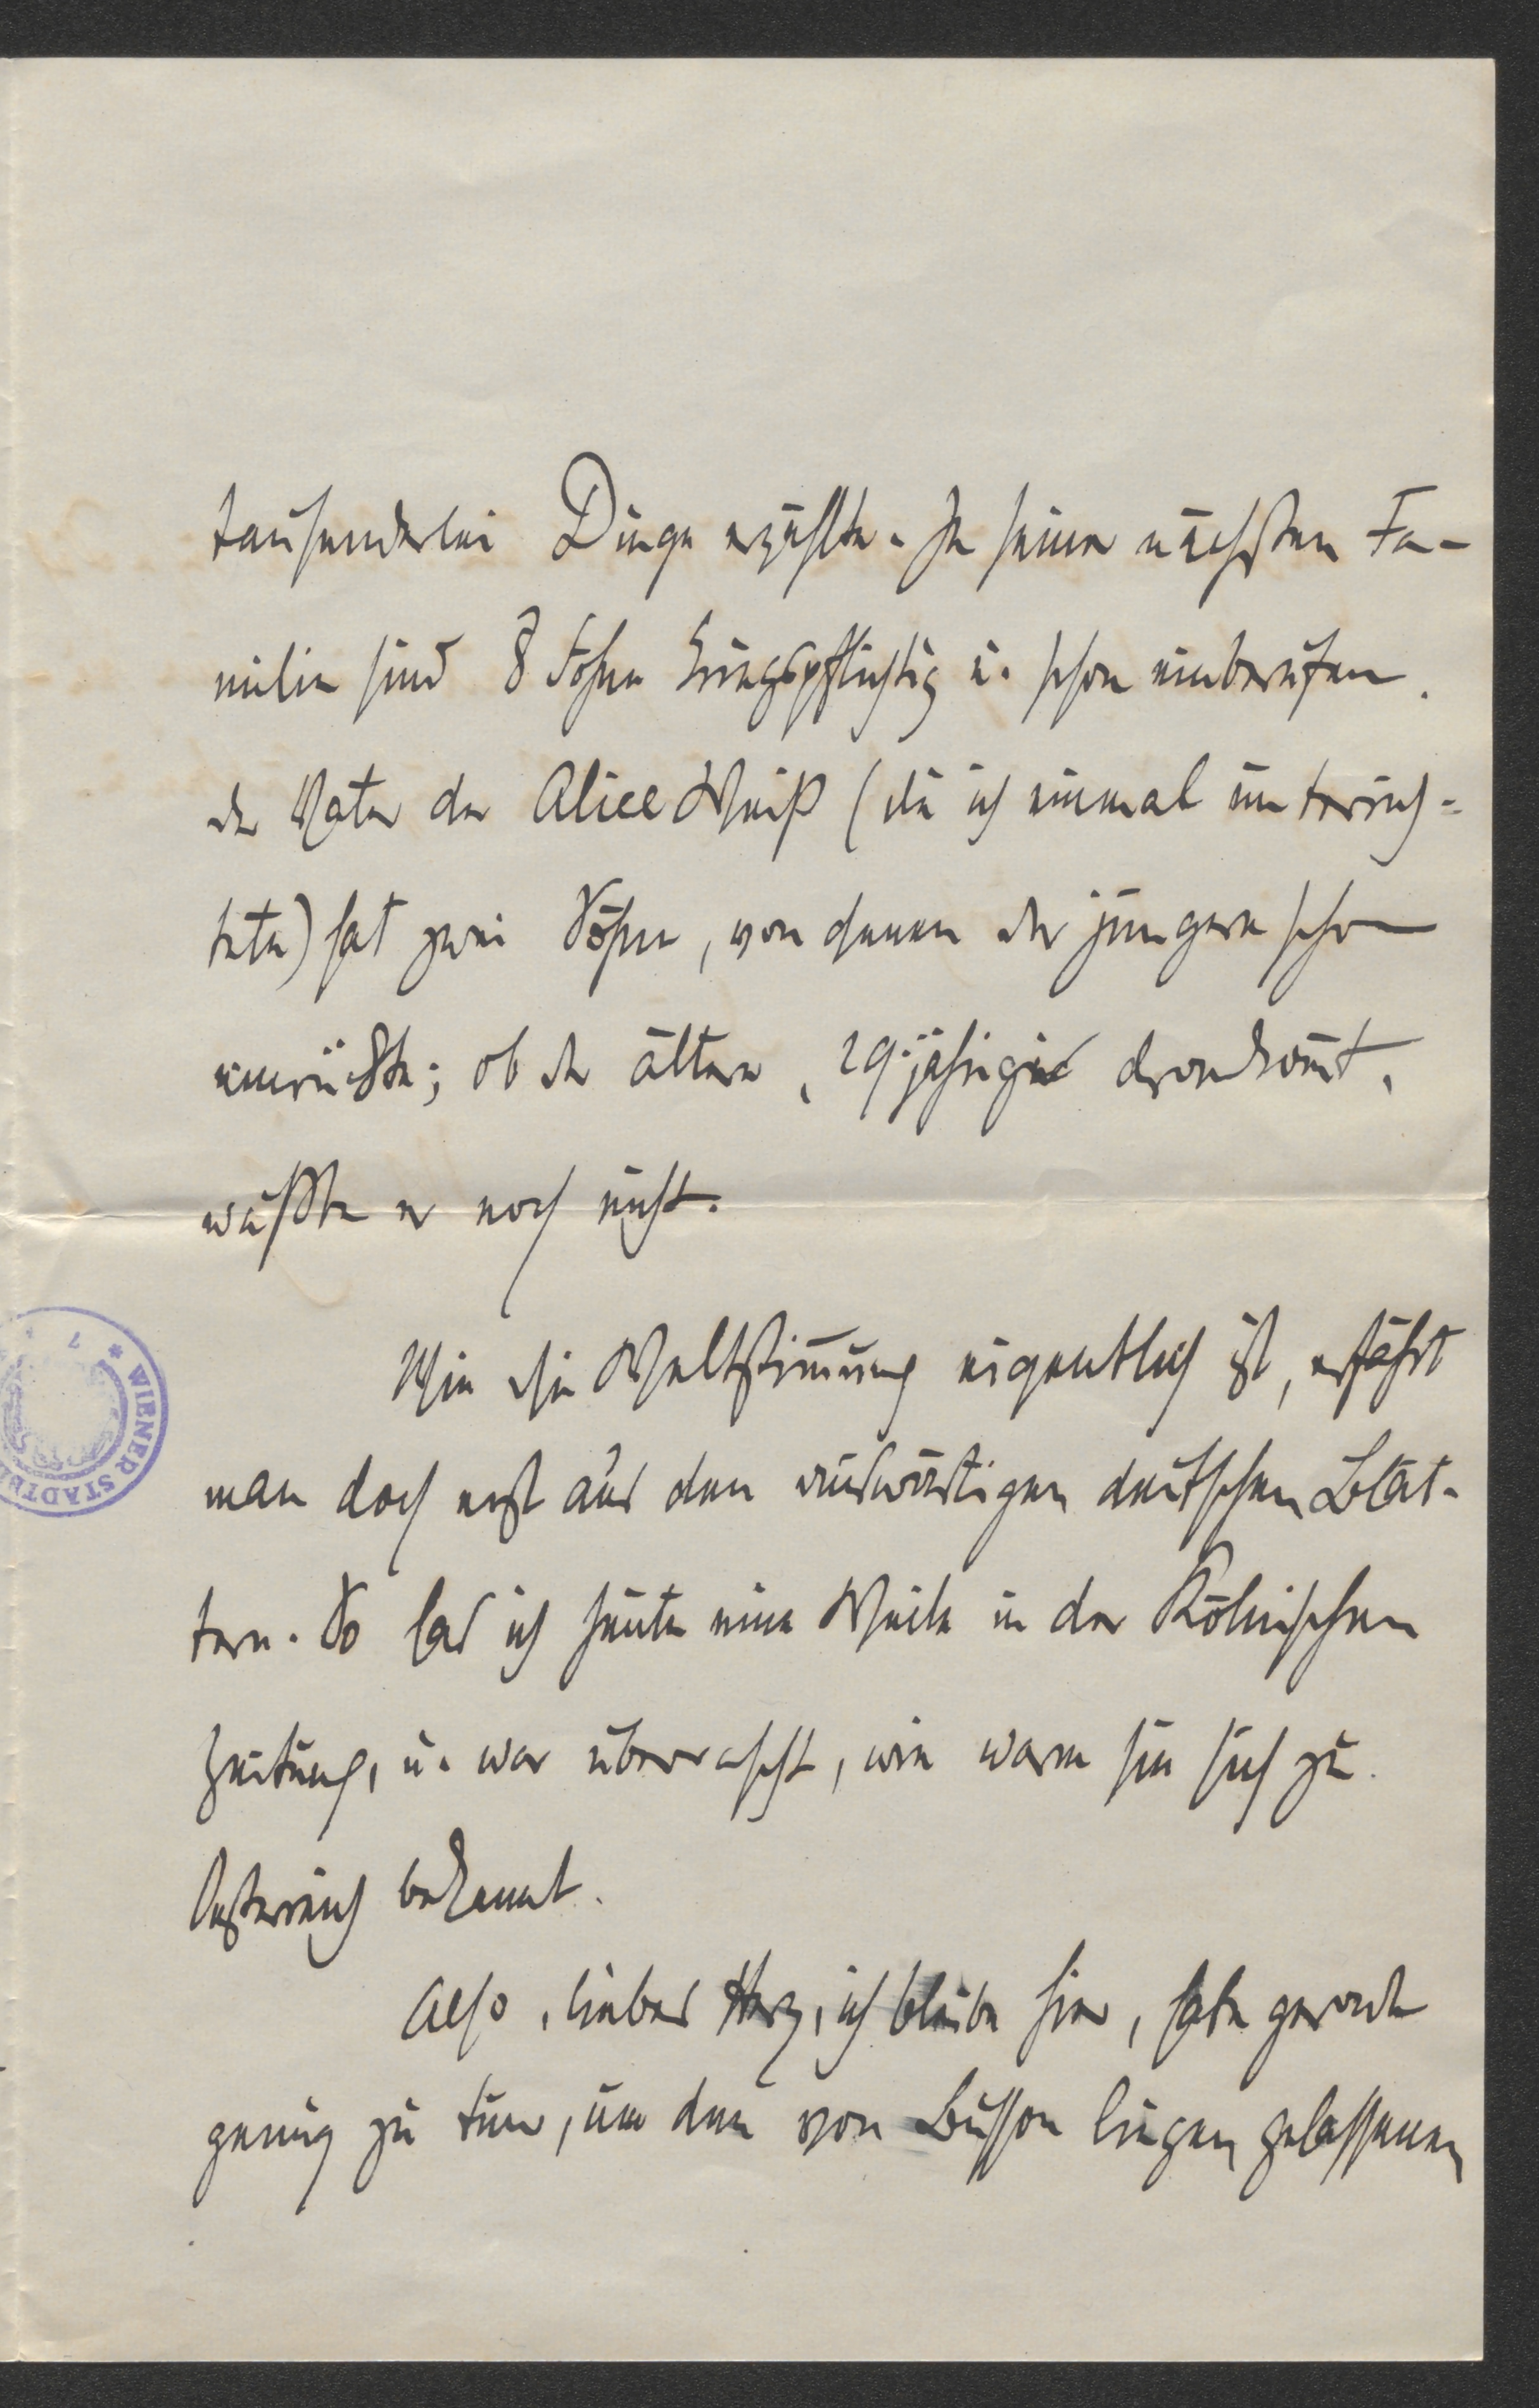 tausenderlei Dinge erzählte. In seiner nächsten Fa-
milie sind 8 Söhne kriegspflichtig u. schon einberufen.
Der Vater der Alice Weiß (die ich einmal unterrich-
tete) hat zwei Söhne, von denen der jüngere schon
einrückte; ob der ältere, 29jährige drankomt,
wußte er noch nicht.
Wie die Weltstimung eigentlich ist, erfährt
man doch erst aus den auswärtigen deutschen Blät-
tern. So las ich heute eine Weile in der Kölnischen
Zeitung, u. war überrascht, wie warm sie sich zu
Österreich bekennt.
Also, liebes Herz, ich bleibe hier, habe gerade
genug zu tun, um den von Busson liegen gelassenen
WIENER STADTBI